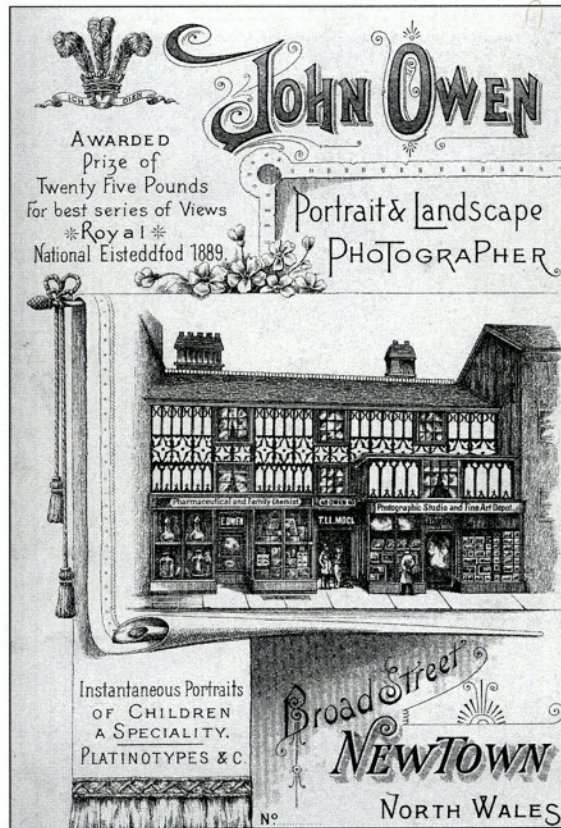 ICH DIEN
JOHN OWEN
AWARDED
Prize of
Twenty Five Pounds
For best series of Views
Royal
National Eisteddfod 1889.
Portrait & Landscape
PHOTOGRAPHER
Pharmaceutical and Family Chemist.
Photographic Studio and Fine Art Depot.
E.OWEN
Instantaneous Portraits
OF CHILDREN
A SPECIALITY.
PLATINOTYPES & C.
Broad Street
NEWTOWN
NORTH WALES
No